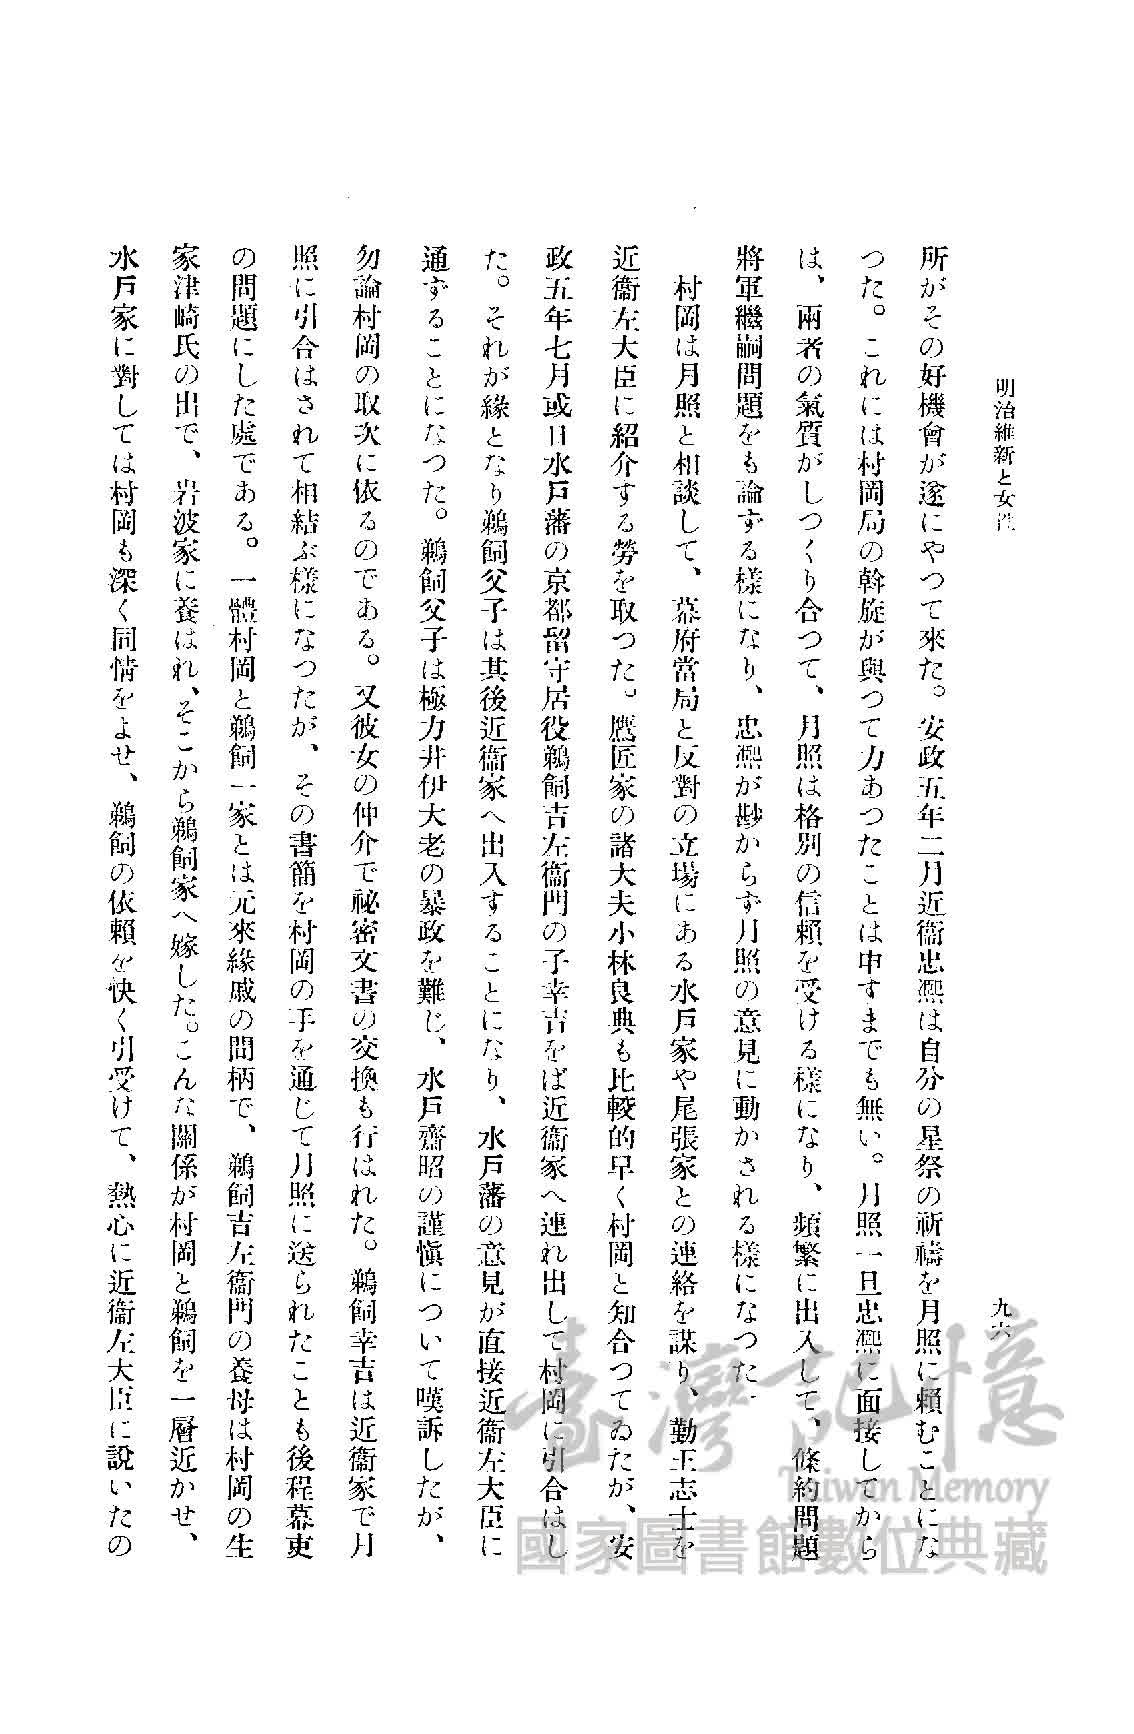 明治維新と女性
九六
所がその好機會が遂にやつて來た。安政五年二月近衞忠凞は自分の星祭の祈禱を月照に賴むことにな
つた。これには村岡局の斡旋が與つて力あつたことは申すまでも無い。月照一旦忠凞に面接してから
は、兩者の氣質がしつくり合つて、月照は格別の信賴を受ける樣になり、頻繁に出入して、條約問題
將軍繼嗣問題をも論ずる樣になり、忠凞が尠からず月照の意見に動かされる樣になつた。
村岡は月照と相談して、幕府當局と反對の立場にある水戶家や尾張家との連絡を謀り、勤王志士を
近衞左大臣に紹介する勞を取つた。鷹匠家の諸大夫小林良典も比較的早く村岡と知合つてゐたが、安
政五年七月或日水戶藩の京都留守居役鵜飼吉左衞門の子幸吉をば近衞家へ連れ出して村岡に引合はし
た。それが緣となり鵜飼父子は其後近衞家へ出入することになり、水戶藩の意見が直接近衞左大臣に
通ずることになつた。鵜飼父子は極力井伊大老の暴政を難じ、水戶齋昭の謹愼について嘆訴したが、
勿論村岡の取次に依るのである。又彼女の仲介で祕密文書の交換も行はれた。鵜飼幸吉は近衞家で月
照に引合はされて相結ぶ樣になつたが、その書簡を村岡の手を通じて月照に送られたことも後程幕吏
の問題にした處である。一體村岡と鵜飼一家とは元來緣戚の間柄で、鵜飼吉左衞門の養母は村岡の生
家津崎氏の出で、岩波家に養はれ、そこから鵜飼家へ嫁した。こんな關係が村岡と鵜飼を一層近かせ、
水戶家に對しては村岡も深く同情をよせ、鵜飼の依賴を快く引受けて、熱心に近衞左大臣に說いたの
臺灣記憶
Taiwan Memory
國家圖書館數位典藏